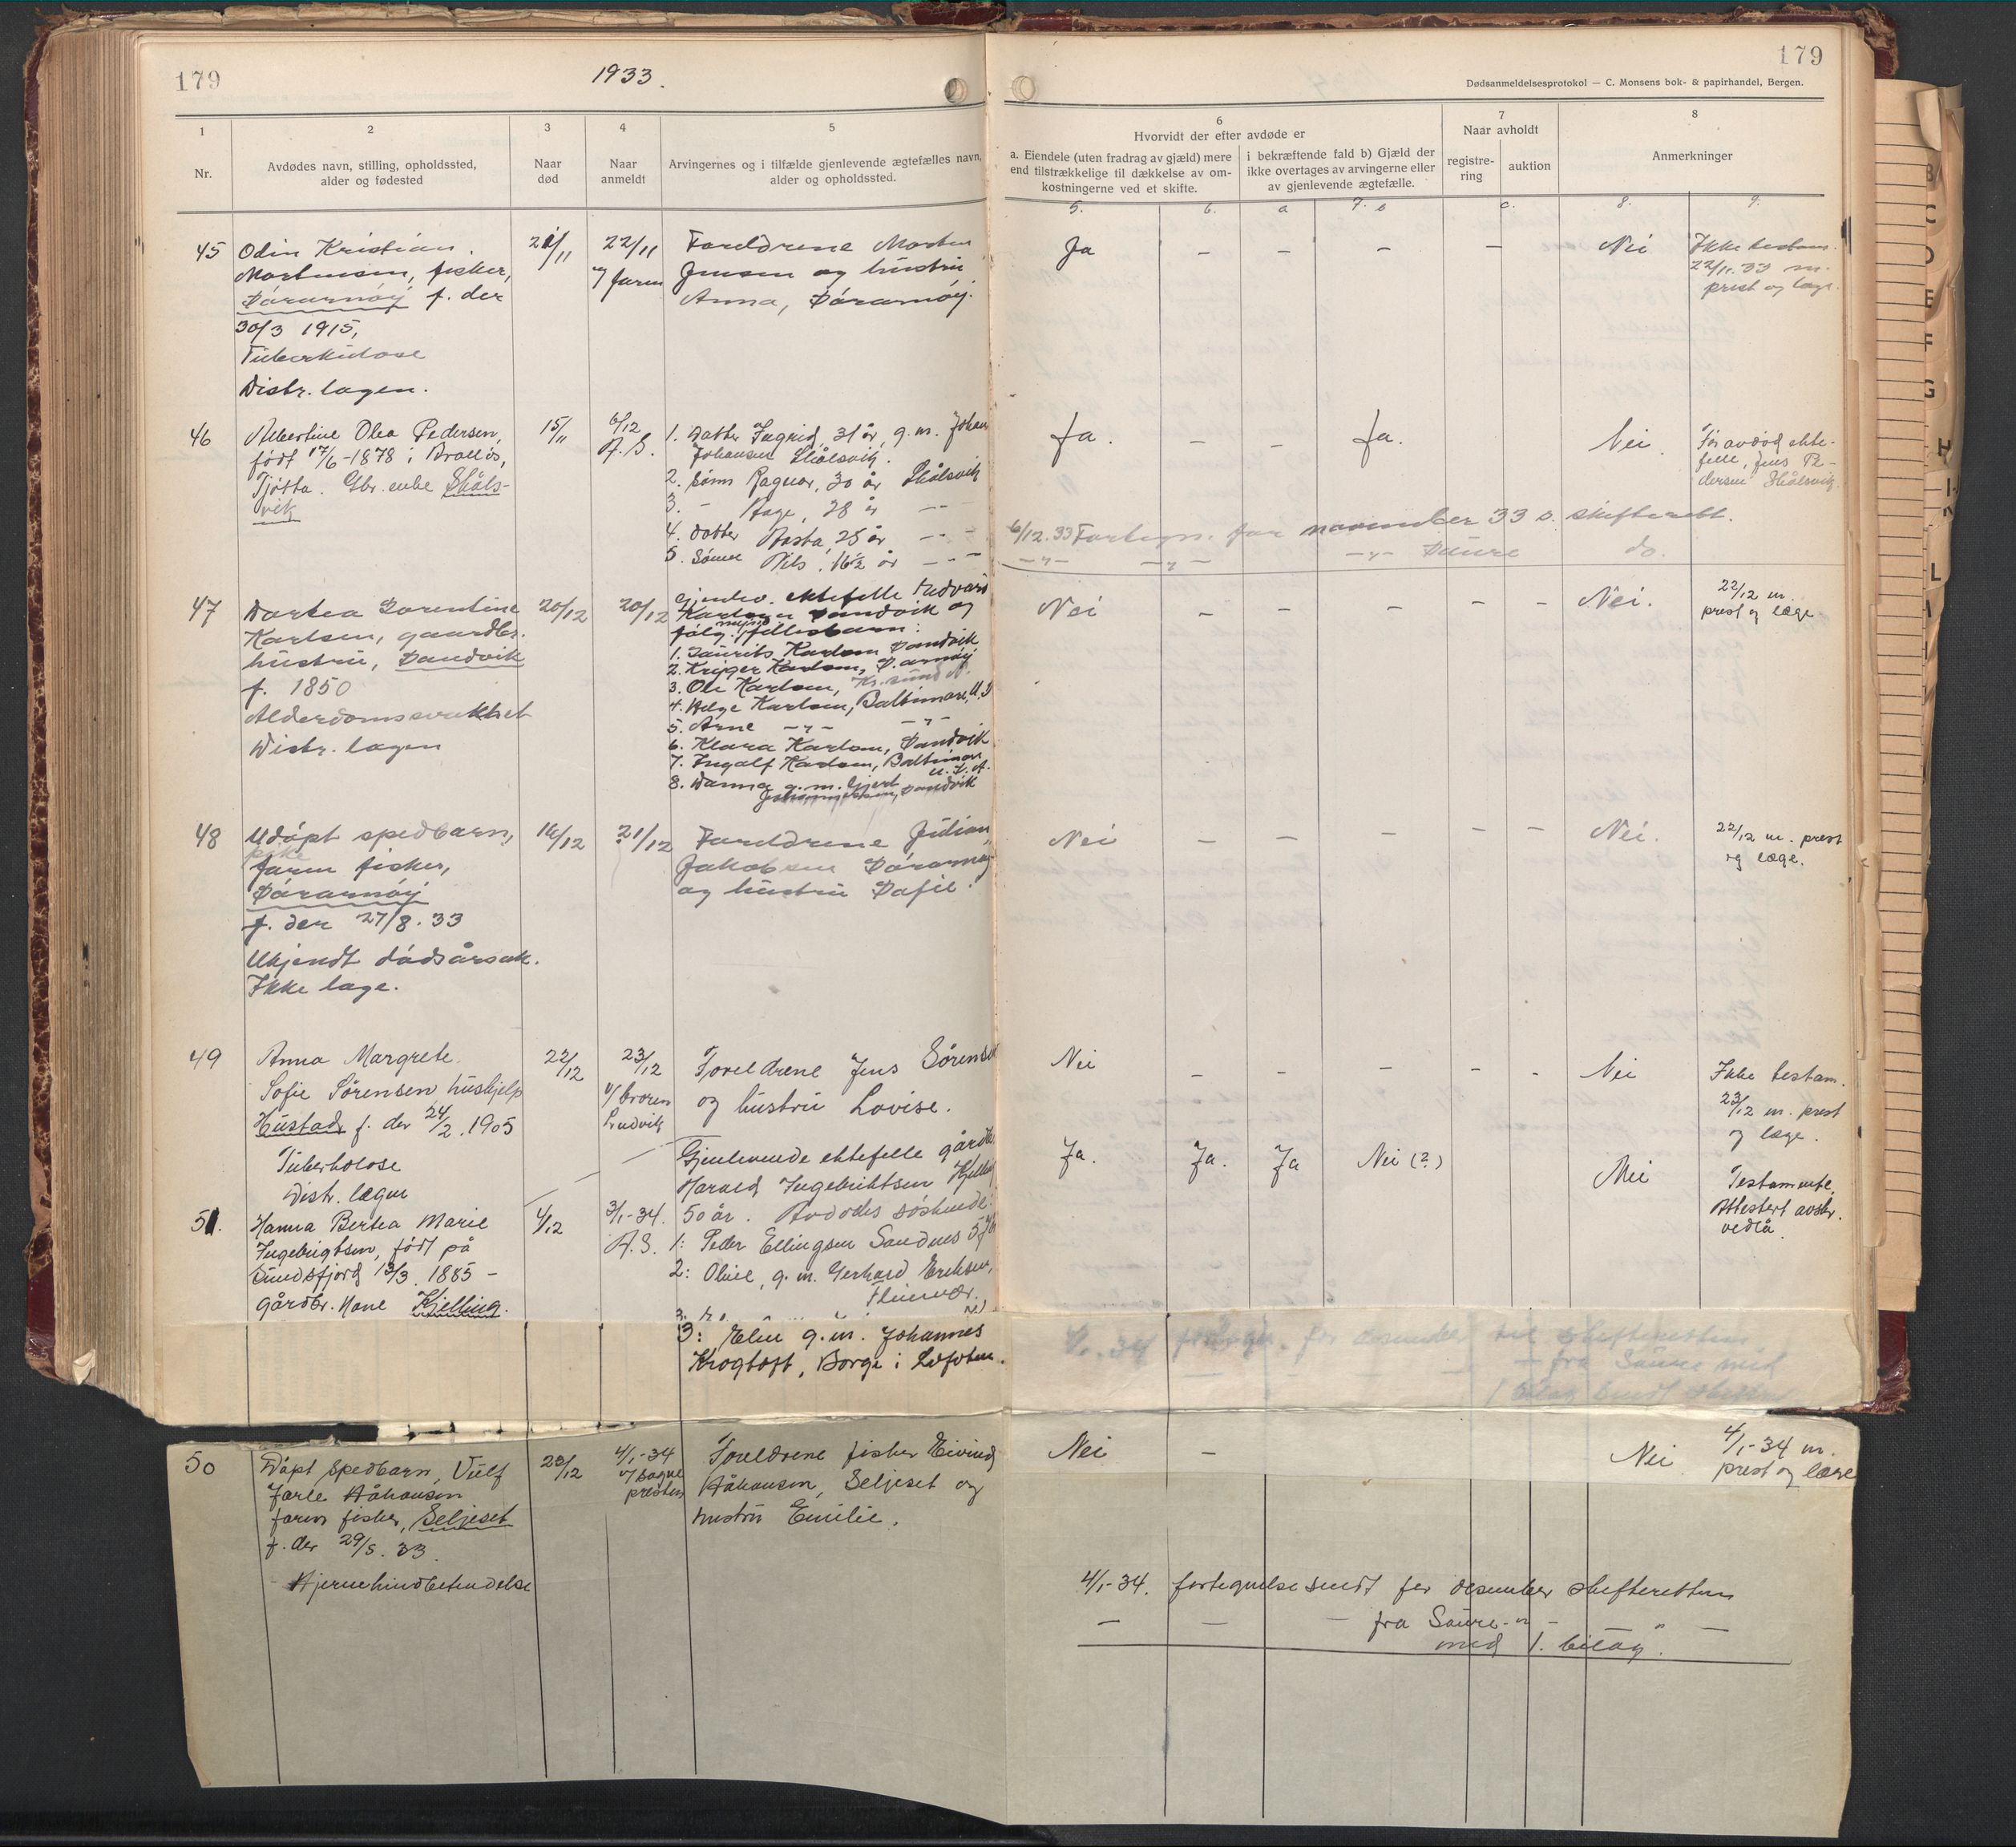 179
1933.
179
Dødsanmeldelsesprotokol — C. Monsens bok- & papirhandel, Bergen.
1
2
3
4
5
6
7
8
Nr.
Avdødes navn, stilling, opholdssted,
alder og fødested
Naar
død
Naar
anmeldt
Arvingernes og i tilfælde gjenlevende ægtefælles navn,
alder og opholdssted.
Hvorvidt der efter avdøde er
a. Eiendele (uten fradrag av gjæld) mere
end tilstrækkelige til dækkelse av om-
kostningerne ved et skifte.
i bekræftende fald b) Gjæld der
ikke overtages av arvingerne eller
av gjenlevende ægtefælle.
Naar avholdt
registre-
ring
auktion
Anmerkninger
5.
6.
a
7. b
c.
8.
9.
45
Odin Kristian
Mortensen, fisker,
Sørarnøy f. der
30/3 1915,
Tuberkulose
Distr. lægen.
21/11
22/11
v/ faren
Foreldrene Morten
Jensen og hustru
Anna, Sørarnøy.
Ja
–
–
–
–
Nei
Ikke testam.
22/11.33 m.
prest og læge.
46
Albertine Olea Pedersen,
født 17/6-1878 i Brasløs,
Tjøtta. Gbr. enke Skåls-
vik
15/11
6/12
A. S.
1. Datter Ingrid, 31 år, g.m. Johan
Johansen Skålsvik.
2. Sønn Ragnar, 30 år Skålsvik
3. – Aage, 28 år – –
4. datter Aasta, 25 år – –
5. Sønn Nils, 16½ år – –
Ja.
–
–
Ja.
Nei
Før avdød ekte-
felle, Jens Pe-
dersen Skålsvik.
6/12.33 Fortegn. for november 33 s. skifterett.
–„– –„– –„– Saure do.
47
Dortea Dorentine
Karlsen, gaardbr.
hustru, Sandvik
f. 1850
Alderdomssvakhet
Distr. lægen
20/12
20/12
Gjenlev. ektefelle Edvard
Karlsen Sandvik og
følg. mynd. fellesbarn:
1. Laurits Karlsen Sandvik
2. Kriger Karlsen, S.arnøy
3. Ole Karlsen, Kr.sund N.
4. Helge Karlsen, Baltimore, U.S
5. Arne –„– –„–
6. Klara Karlsen, Sandvik
7. Ingolf Karlsen, Baltimore
U.S.A.
8. Danna g.m. Gjert
Johannessen, Sandvik
Nei
–
–
–
–
–
Nei.
22/12 m.
prest og læge
48
Udøpt spedbarn,
pike
faren fisker,
Sørarnøy
f. der 27/8.33
Ukjendt dødsårsak.
Ikke læge.
16/12
21/12
Foreldrene Julian
Jakobsen Sørarnøy
og hustru Dafie.
Nei
–
–
–
–
–
Nei.
22/12 m. prest
og læge.
49
Anna Margrete
Sofie Sørensen, hushjelp
Hustad, f. der 24/2.1905
Tuberkolose
Distr. lægen
22/12
23/12
v/ broren
Ludvik
Foreldrene Jens Sørensen
og hustru Lovise.
Nei
–
–
–
–
–
Nei
Ikke testam.
23/12 m. prest
og læge.
51.
Hanna Bertea Marie
Ingebrigtsen, født på
Sundsfjord 13/3.1885 –
gårdbr. kone Kjelling.
4/12
3/1-34.
A. S.
Gjenlevende ektefelle gårdb.
Harald Ingebriktsen Kjelling
50 år. Avdødes søskende:
1: Peder Ellingsen Sandnes
2: Oline, g.m. Gerhard Eriksen,
Fleinvær.
3: Elen g.m. Johannes
Krogtoft, Borge i Lofoten.
Ja.
Ja.
Ja
Nei (?)
Nei
Testamente.
Attestert avskr.
vedlå.
4/1.34 fortegn. for desember til skifteretten
– fra Saure med
1 bilag sendt
50
Døpt spedbarn, Vulf
Jarle Håkonsen
faren fisker, Seljeset
f. der 29/5.33.
Hjernehindbetendelse
28/12
4/1-34
v/ sogne
presten
Foreldrene fisker Eivind
Håkonsen, Seljeset og
hustru Emilie.
Nei
–
Nei
4/1-34 m.
prest og læge
4/1-34. fortegnelse sendt for desember skifteretten
– – – fra Saure –„– „ –
med 1. bilag.